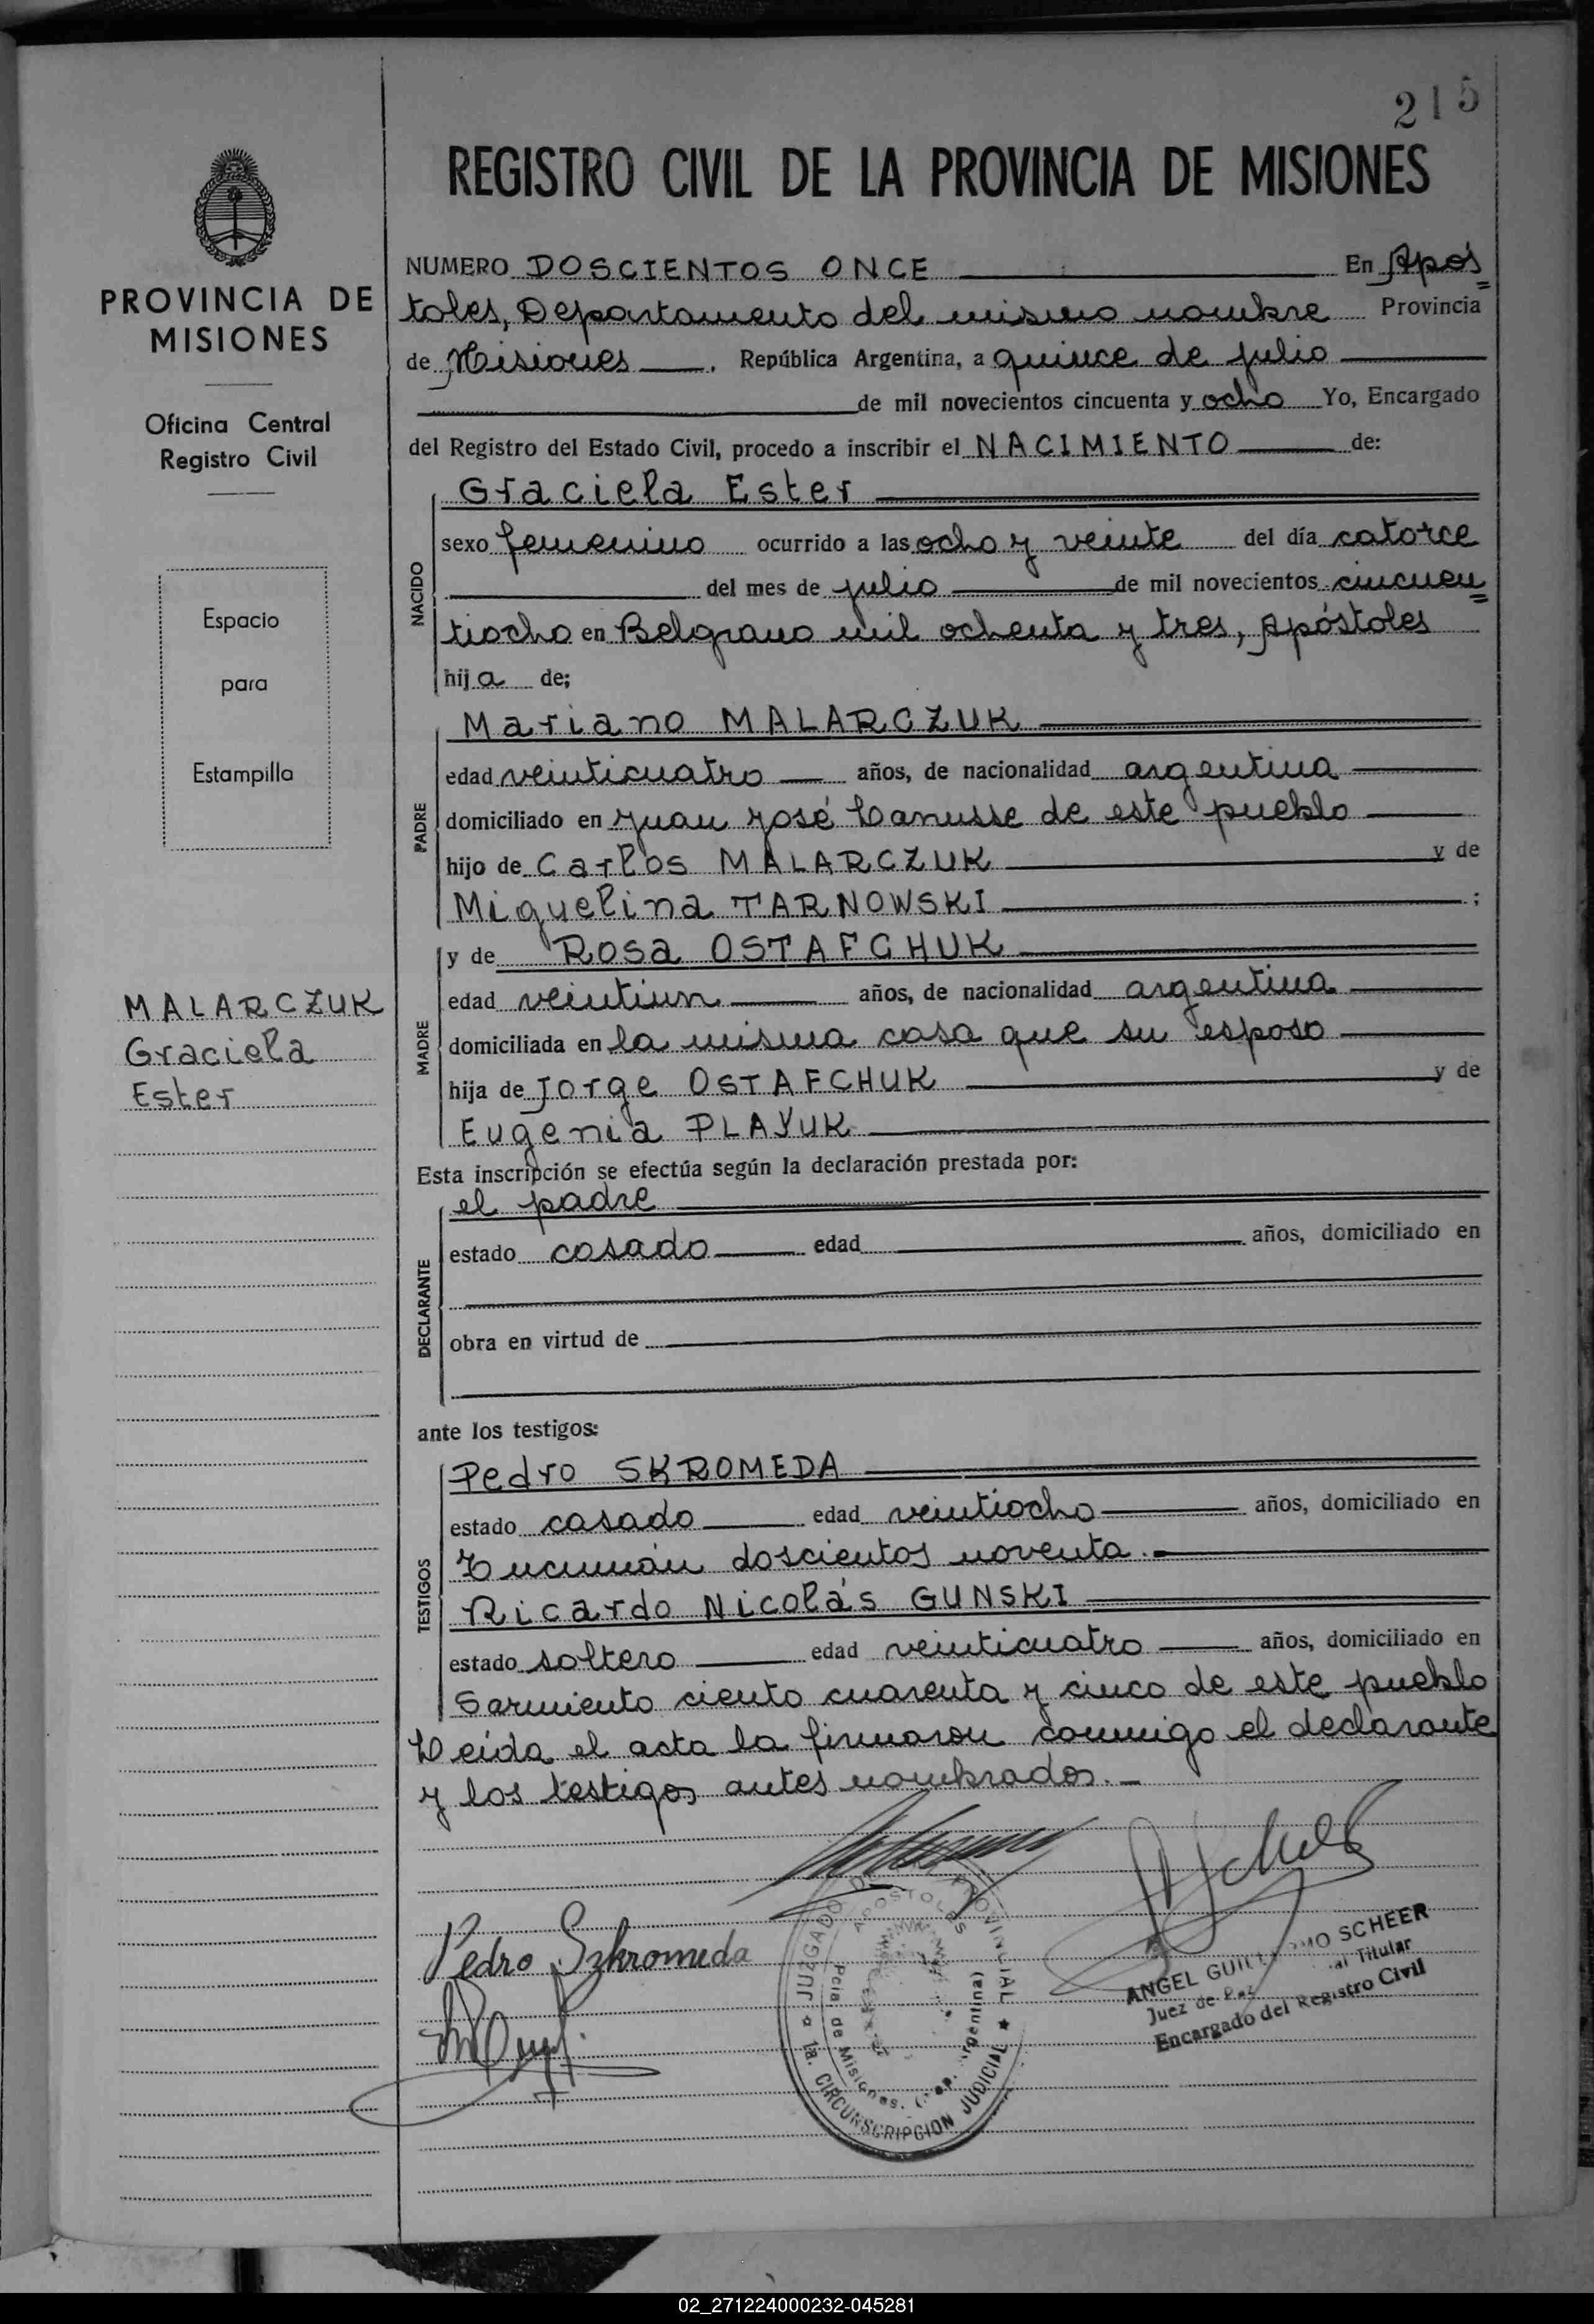 215
REGISTRO CIVIL DE LA PROVINCIA DE MISIONES
PROVINCIA DE
MISIONES
Oficina Central
Registro Civil
Espacio
para
Estampilla
MALARCZUK
Graciela
Ester
NUMERO DOSCIENTOS ONCE En Após=
toles, Departamento del mismo nombre Provincia
de Misiones, República Argentina, a quince de julio
de mil novecientos cincuenta y ocho Yo, Encargado
del Registro del Estado Civil, procedo a inscribir el NACIMIENTO de:
NACIDO
Graciela Ester
sexo femenino ocurrido a las ocho y veinte del día catorce
del mes de julio de mil novecientos cincuen=
tiocho en Belgrano mil ochenta y tres, Apóstoles
hija de;
PADRE
Mariano MALARCZUK
edad veinticuatro años, de nacionalidad argentina
domiciliado en Juan José Lanusse de este pueblo
hijo de Carlos MALARCZUK y de
Miguelina TARNOWSKI ;
MADRE
y de Rosa OSTAFCHUK
edad veintiun años, de nacionalidad argentina
domiciliada en la misma casa que su esposo
hija de Jorge OSTAFCHUK y de
Eugenia PLAYUK
Esta inscripción se efectúa según la declaración prestada por:
DECLARANTE
el padre
estado casado edad años, domiciliado en
obra en virtud de
ante los testigos:
TESTIGOS
Pedro SKROMEDA
estado casado edad veintiocho años, domiciliado en
Tucumán doscientos noventa.-
Ricardo Nicolás GUNSKI
estado soltero edad veinticuatro años, domiciliado en
Sarmiento ciento cuarenta y cinco de este pueblo
Leída el acta la firmaron conmigo el declarante
y los testigos antes nombrados.-
Pedro Szkromeda
JUZGADO DE PROVINCIAL
APOSTOLES
Pcia. de Misiones.
1a. CIRCUNSCRIPCION JUDICIAL
ANGEL GUILLERMO SCHEER
Juez de Paz Titular
Encargado del Registro Civil
02_271224000232-045281